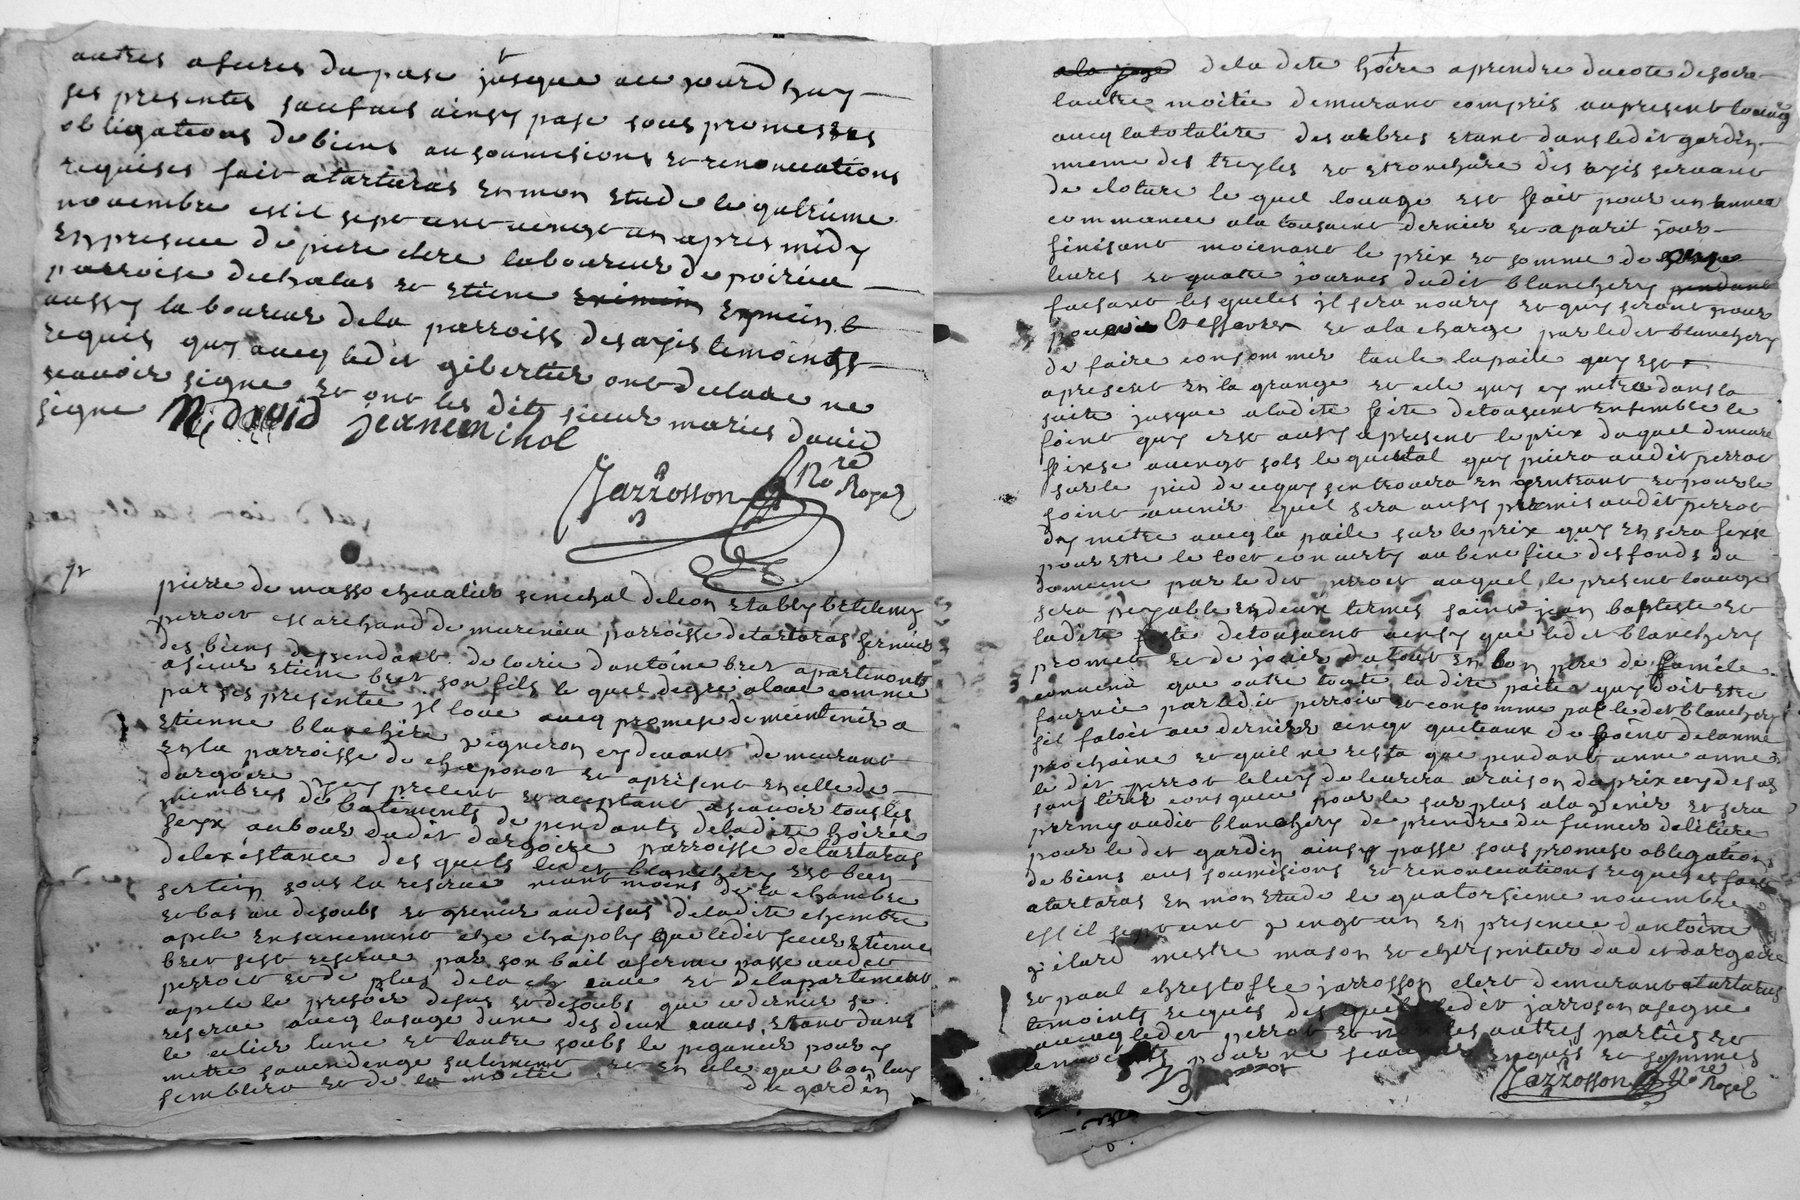 autres afures du pase jusque au jourdhuy
ses presentes saufais ainsy pase sous promesses
obligations de biens au soumisions et renonciations
requises fait a tartaras en mon etude le quatrieme
novembre mil sept cent vengt un apres midy
en presence de piere clere laboureur de poirieu
parroise dechalas et etiene eymein
aussy laboureur dela parroiss desayis temoings
requis quy avecq ledit gibertier ont declare ne
scavoir signe et ont les dits sieur maries david
signe M david jeanne minol
Jarrosson No re Royal
pierre de masso chevalier senechal delion etably betelemy
perrot marchand de murenieu parroisse de tartaras fermier
des biens dependant de loirie dantoine bret apartenont
a sieur etiene bret son fils le quel degre aloue comme
par ses presentee il loue avecq promese de meintenir a
etienne blanchire vigneron cy devant demeurant
en la parroisse de chaponot et apresent en celle de
dargoire icy present et aceptant ascavoir tous les
membres de batiments de pendants deladite hoirie
seyx au bour dudit dargoire parroisse de tartaras
delexistance des quels ledit blanchery est bien
sertein sous la reserve neant moins de la chambre
et bas au desoubs et grenier au desus deladite chambre
apele enscinement che chapoly que ledit sieur etiene
bret sest reserve par son bail a ferme passe audit
perrot et de plus dela cave et delapartement
apele le presoir desus et desoubs que ce dernier se
reserve avecq lusage dune des deux cuves etant dans
le celier lune et lautre soubs le peganier pour y
metre savendenge sulement et en cele que bon luy
semblera et de la moetie du gardin
dela dite hoirie a prendre ducote desoire
lautre moitie demurant compris aupresent louage
avecq la totalite des arbres etant dans ledit gardin
meme des treyles et etronchure des ayis servant
de cloture le quel louage est fait pour un annee
commancee ala tousaint dernier et a parit jour
finisant moienant le prix et somme de
livres et quatre journes dudit blanchery pendant
faisant les queles il sera noury et quy seront pour
et a la charge par ledit blanchery
de faire consommer toute lapaile quy est
apresent en la grange et cele quy ey metra dans la
suite jusque a ladite fete detousent ensemble le
foint quy est ausy apresent le prix duquel dmeure
fixse a vengt sols le quental quy piera audit perrot
sur le pied de ce quy sentrouvera en entrant et pour le
foint avenir quel sera ausy permis audit perrot
dy metre avecq la paile sur le prix quy en sera fexse
pour etre le tout converty au benefice des fonds du
domeine par le dit perrot auquel le present louage
sera peyable en deux termes saint jean baptiste et
ladite fete detousaint ainsy que ledit blanchery
promet et de jouir du tout en bon pere de famele
convenu que outre toute la dite paile quy doit etre
fournie par ledit perrot et consomme par le dit blanchery
sil faloit au dernier cinqt quetaux de foint delanne
prochaine et quil ne resta que pendant anne annee
le dit perrot le luy delivrera a raison du prix cy desus
sans tirer consquence pour le surplus a lavenir et sera
permy audit blanchery de prendre du fumier deletiere
pour le dit gardin ainsy passe sous promese obligation
de biens aus soumisions et renonciations requeses fait
a tartaras en mon etude le quatorsieme novembre
mil sept cent vengt un en presence dantoine
gilard mestre mason et cherpentier dudit dargoire
et paul chrestofle jarrosson clerc demurant a tartaras
temoints requis des quels ledit jarroson a segne
avecq ledit perrot et non les autres parties et
temoints pour ne scavoir enquis et sommes
perrot
Jarrosson No re Royal